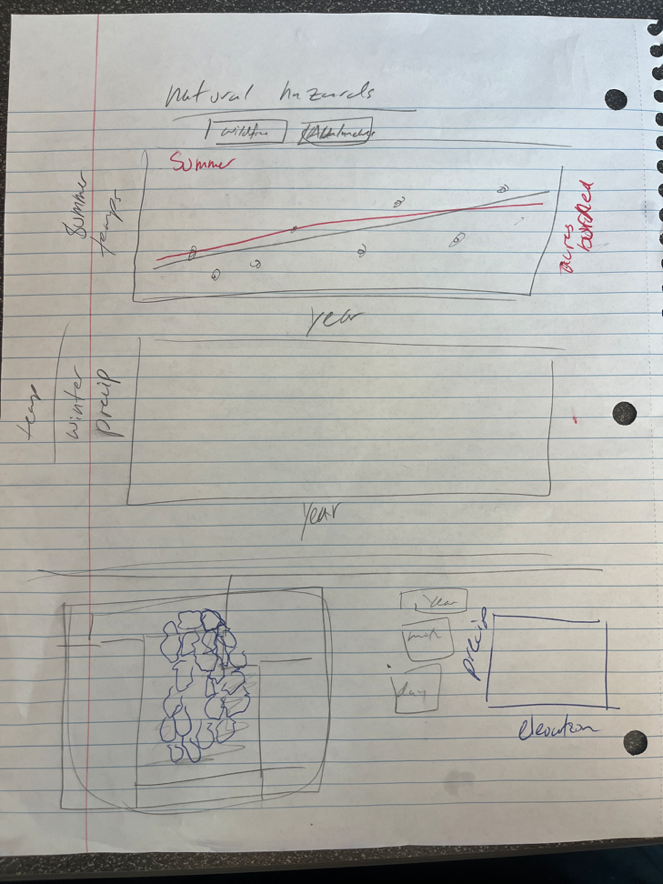 Natural hazards
wildfire Avalanches
Summer
Summer
temps
acres
burned
year
temp
winter
precip
year
year
day
precip
elevation